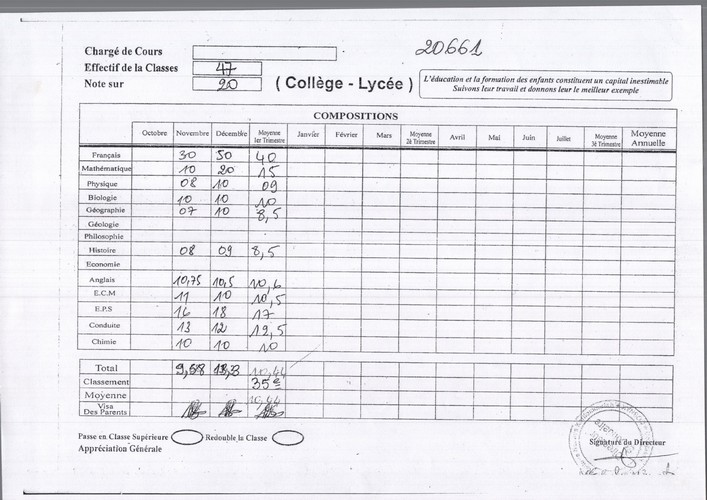 20661
Chargé de Cours
Effectif de la Classes 47
Note sur 20
( Collège - Lycée )
L'éducation et la formation des enfants constituent un capital inestimable
Suivons leur travail et donnons leur le meilleur exemple
COMPOSITIONS
Octobre Novembre Décembre Moyenne 1er Trimestre Janvier Février Mars Moyenne 2è Trimestre Avril Mai Juin Juillet Moyenne 3è Trimestre Moyenne Annuelle
Français 30 50 40
Mathématique 10 20 15
Physique 08 10 09
Biologie 10 10 10
Géographie 07 10 8,5
Géologie
Philosophie
Histoire 08 09 8,5
Economie
Anglais 10,75 10,5 10,6
E.C.M 11 10 10,5
E.P.S 16 18 17
Conduite 13 12 12,5
Chimie 10 10 10
Total 10,44
Classement 35e
Moyenne 10,44
Visa Des Parents
Passe en Classe Supérieure Redouble la Classe
Appréciation Générale
Signature du Directeur